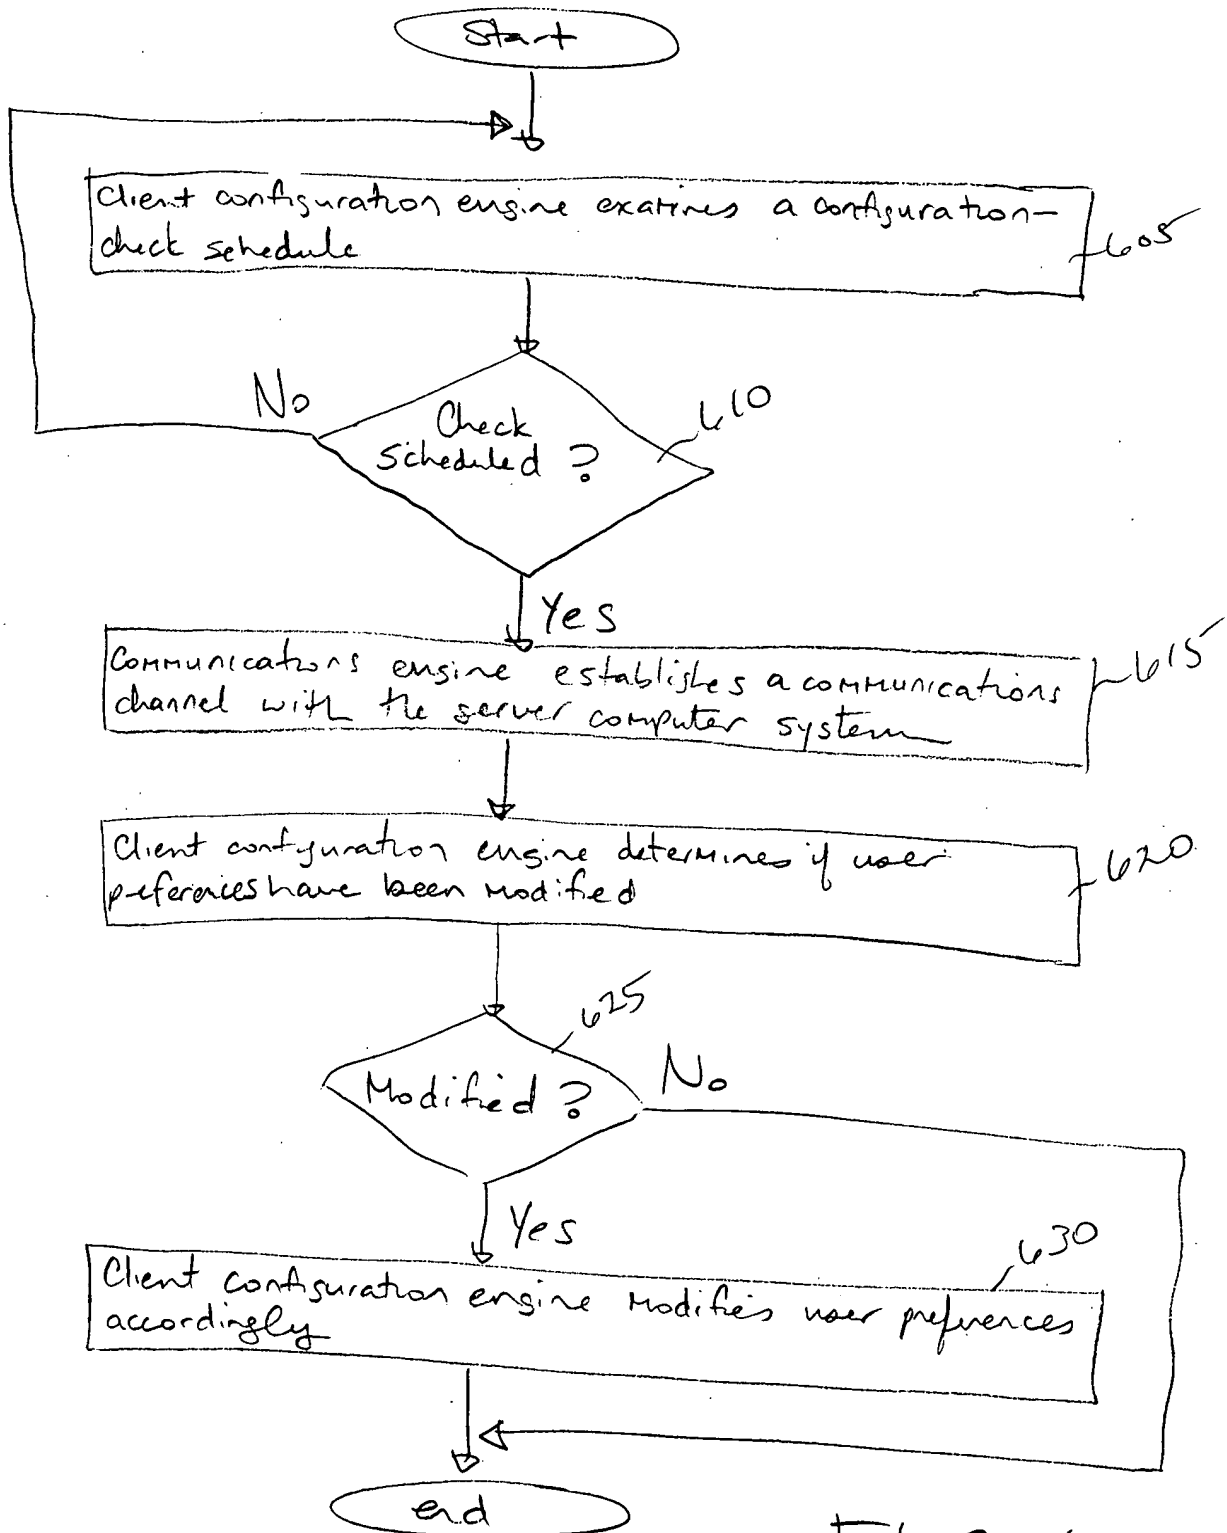 Start
Client configuration engine examines a configuration-
check schedule
605
No
Check
Scheduled ?
610
Yes
Communications engine establishes a communications
channel with the server computer system
615
Client configuration engine determines if user
preferences have been modified
620
625
Modified ?
No
Yes
630
Client configuration engine modifies user preferences
accordingly
end